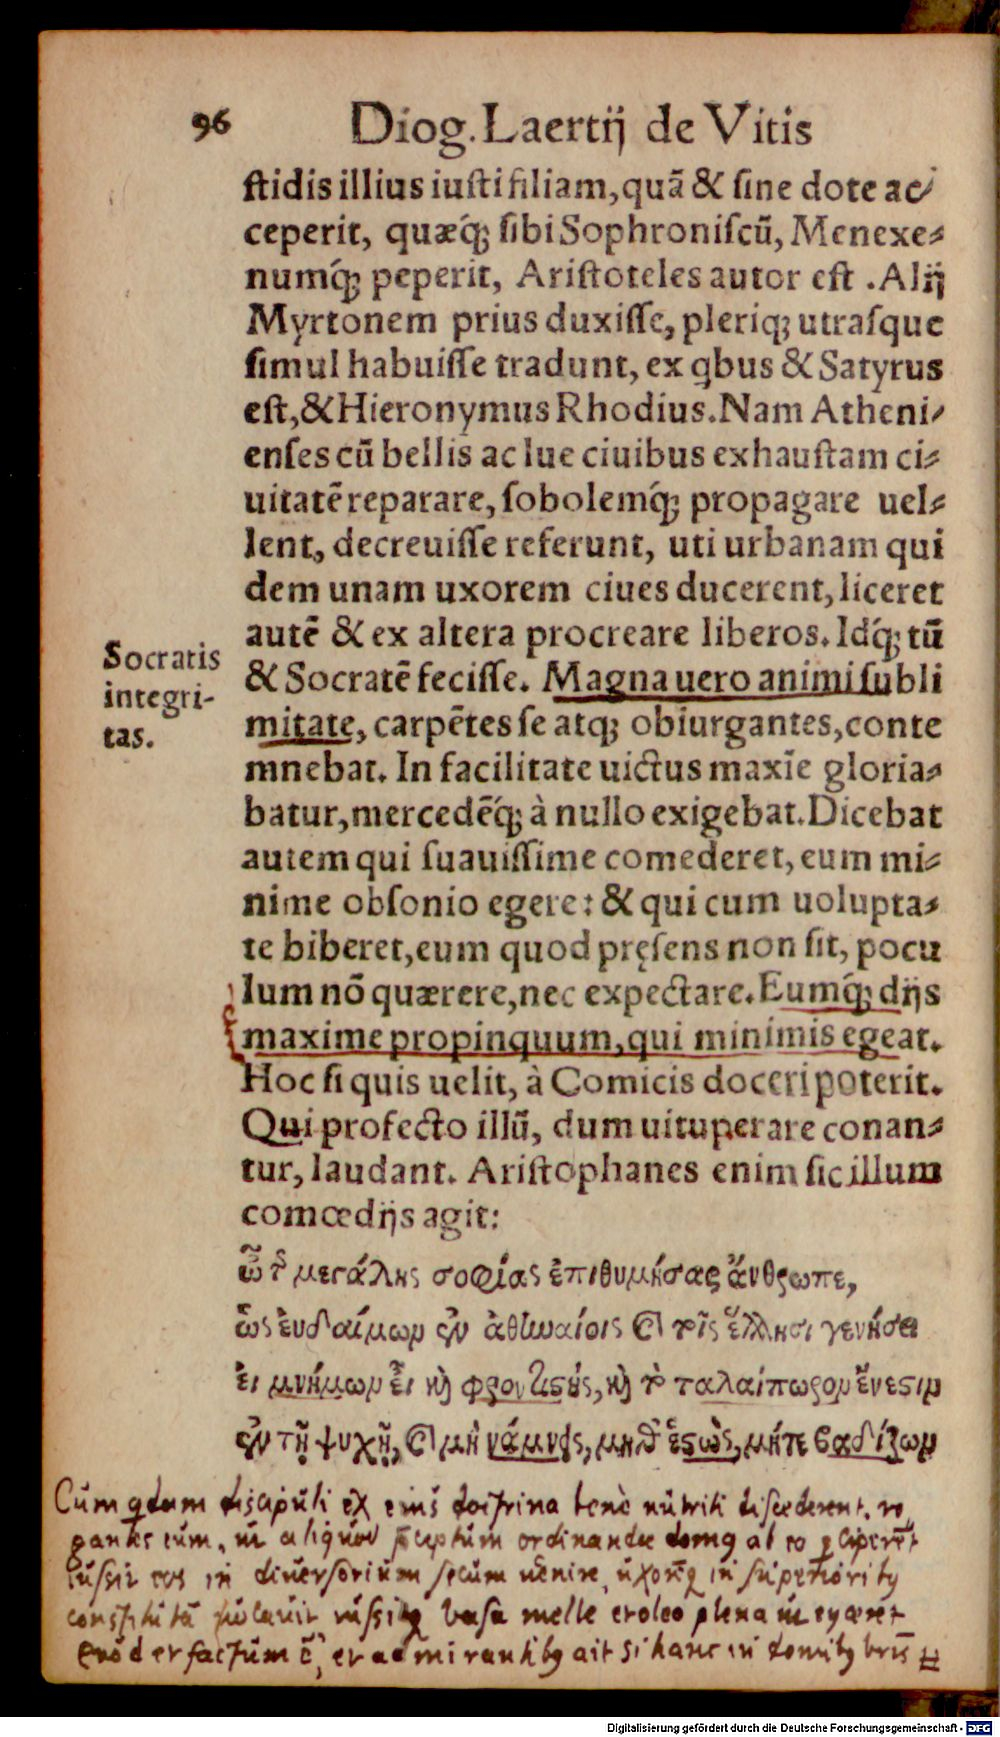 96 Diog. Laertij de Vitis
stidis illius iusti filiam, quã & sine dote ac⸗
ceperit, quæq́; sibi Sophroniscũ, Menexe⸗
numq́; peperit, Aristoteles autor est. Alij
Myrtonem prius duxisse, pleriq; utrasque
simul habuisse tradunt, ex qbus & Satyrus
est, & Hieronymus Rhodius. Nam Atheni⸗
enses cũ bellis ac lue ciuibus exhaustam ci⸗
uitatẽ reparare, sobolemq́; propagare uel⸗
lent, decreuisse referunt, uti urbanam qui
dem unam uxorem ciues ducerent, liceret
autẽ & ex altera procreare liberos. Idq́; tũ
& Socratẽ fecisse. Magna uero animi subli
mitate, carpẽtes se atq; obiurgantes, conte
mnebat. In facilitate uictus maxĩe gloria⸗
batur, mercedẽq́; à nullo exigebat. Dicebat
autem qui suauissime comederet, eum mi⸗
nime obsonio egere: & qui cum uolupta⸗
te biberet, eum quod pręsens non sit, pocu
lum nõ quærere, nec expectare. Eumq́; dijs
maxime propinquum, qui minimis egeat.
Hoc si quis uelit, à Comicis doceri poterit.
Qui profecto illũ, dum uituperare conan⸗
tur, laudant. Aristophanes enim sic illum
comœdijs agit:
Socratis
integri-
tas.
ὦ τ̃ μεγάλης σοφίας ἐπιθυμήσας ἄνθρωπε,
ὡς ἐυδαίμων ἐν ἀθηναίοις καὶ τοῖς ἕλλησι γενήσει
ἐι μνήμων εἶ καὶ φροντιστής, καὶ τὸ ταλαίπωρον ἔνεστιν
ἐν τῇ ψυχῇ, καὶ μὴ κάμνεις, μήθ' ἑστὼς, μήτε βαδίζων
Cum qdam discipuli ex eius doctrina bene nutriti discederent, ro
gantes eum, ut aliquod pceptum ordinandae domq ab eo pciperet
iussit eos in diuersorium secum uenire, uxorq in superiorib
vasa melle et oleo plena
et factum et admirantib ait si hanc in
Digitalisierung gefördert durch die Deutsche Forschungsgemeinschaft - DFG